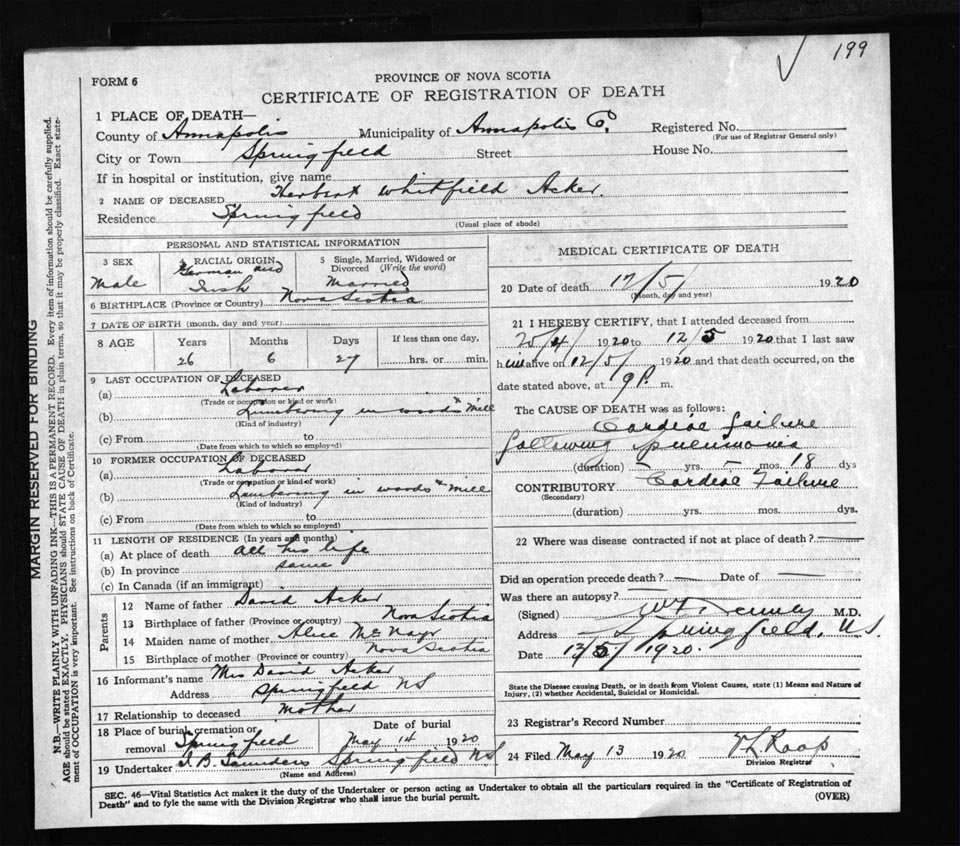 199
FORM 6
PROVINCE OF NOVA SCOTIA
CERTIFICATE OF REGISTRATION OF DEATH
1 PLACE OF DEATH—
County of Annapolis Municipality of Annapolis Co. Registered No.
(For use of Registrar General only)
City or Town Springfield Street House No.
If in hospital or institution, give name
2 NAME OF DECEASED Herbert Whitfield Acker.
Residence Springfield
(Usual place of abode)
PERSONAL AND STATISTICAL INFORMATION
3 SEX 4 RACIAL ORIGIN 5 Single, Married, Widowed or Divorced (Write the word)
Male German and Irish Married
6 BIRTHPLACE (Province or Country) Nova Scotia
7 DATE OF BIRTH (month, day and year)
8 AGE Years Months Days If less than one day,
26 6 27 hrs. or min.
9 LAST OCCUPATION OF DECEASED
(a) Laborer
(Trade or occupation or kind of work)
(b) Lumbering in woods & Mill
(Kind of industry)
(c) From to
(Date from which to which so employed)
10 FORMER OCCUPATION OF DECEASED
(a) Laborer
(Trade or occupation or kind of work)
(b) Lumbering in woods & Mill
(Kind of industry)
(c) From to
(Date from which to which so employed)
11 LENGTH OF RESIDENCE (In years and months)
(a) At place of death all his life
(b) In province same
(c) In Canada (if an immigrant)
Parents
12 Name of father David Acker
13 Birthplace of father (Province or country) Nova Scotia
14 Maiden name of mother Alice McNayr
15 Birthplace of mother (Province or country) Nova Scotia
16 Informant's name Mrs David Acker
Address Springfield NS
17 Relationship to deceased Mother
18 Place of burial, cremation or removal Springfield Date of burial May 14 1920
19 Undertaker Saunders Springfield NS
(Name and Address)
MEDICAL CERTIFICATE OF DEATH
20 Date of death 12/5/ 1920
(Month, day and year)
21 I HEREBY CERTIFY, that I attended deceased from
1920 to 12/5 1920 that I last saw
him alive on 12/5/ 1920 and that death occurred, on the
date stated above, at 9 P. m.
The CAUSE OF DEATH was as follows:
Cardiac failure
following pneumonia
(duration) – yrs. – mos. 18 dys
CONTRIBUTORY Cardiac Failure
(Secondary)
(duration) yrs. mos. dys.
22 Where was disease contracted if not at place of death? —
Did an operation precede death? — Date of —
Was there an autopsy? —
(Signed) M.D.
Address Springfield, N.S.
Date 13/5/1920.
State the Disease causing Death, or in death from Violent Causes, state (1) Means and Nature of
Injury, (2) whether Accidental, Suicidal or Homicidal.
23 Registrar's Record Number
24 Filed May 13 1920 Roop
Division Registrar
SEC. 46—Vital Statistics Act makes it the duty of the Undertaker or person acting as Undertaker to obtain all the particulars required in the "Certificate of Registration of
Death" and to fyle the same with the Division Registrar who shall issue the burial permit.
(OVER)
MARGIN RESERVED FOR BINDING
N.B.—WRITE PLAINLY WITH UNFADING INK—THIS IS A PERMANENT RECORD. Every item of information should be carefully supplied.
AGE should be stated EXACTLY. PHYSICIANS should STATE CAUSE OF DEATH in plain terms, so that it may be properly classified. Exact state-
ment of OCCUPATION is very important. See instructions on back of Certificate.